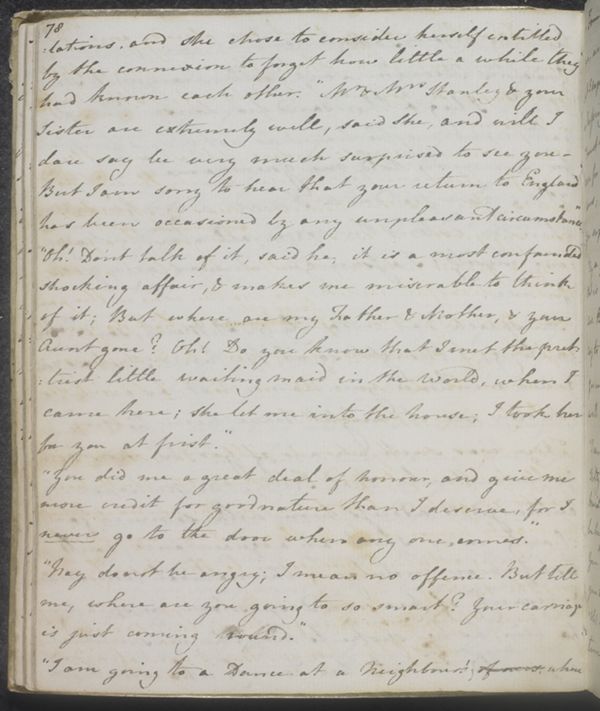 78
:lations. and she chose to consider herself entitled
by the connexion to forget how little a while they
had known each other. "Mr & Mrs Stanley & your
Sister are extremely well, said she, and will I
dare say be very much surprised to see you—
But I am sorry to hear that your return to England
has been occasioned by any unpleasant circumstance."
"Oh! Do'nt talk of it, said he, it is a most confounded
shocking affair, & makes me miserable to think
of it; But where are my Father & Mother, & your
Aunt gone? Oh! Do you know that I met the pret
:tiest little waiting maid in the World, when I
came here; she let me into the house; I took her
for you at first."
"You did me a great deal of honour, and give me
more credit for goodnature than I deserve, for I
never go to the door when any one comes."
"Nay do not be angry; I mean no offence. But tell
me, where are you going to so smart? Your carriage
is just coming round."
"I am going to a Dance at a Neighbour's, of ours, where